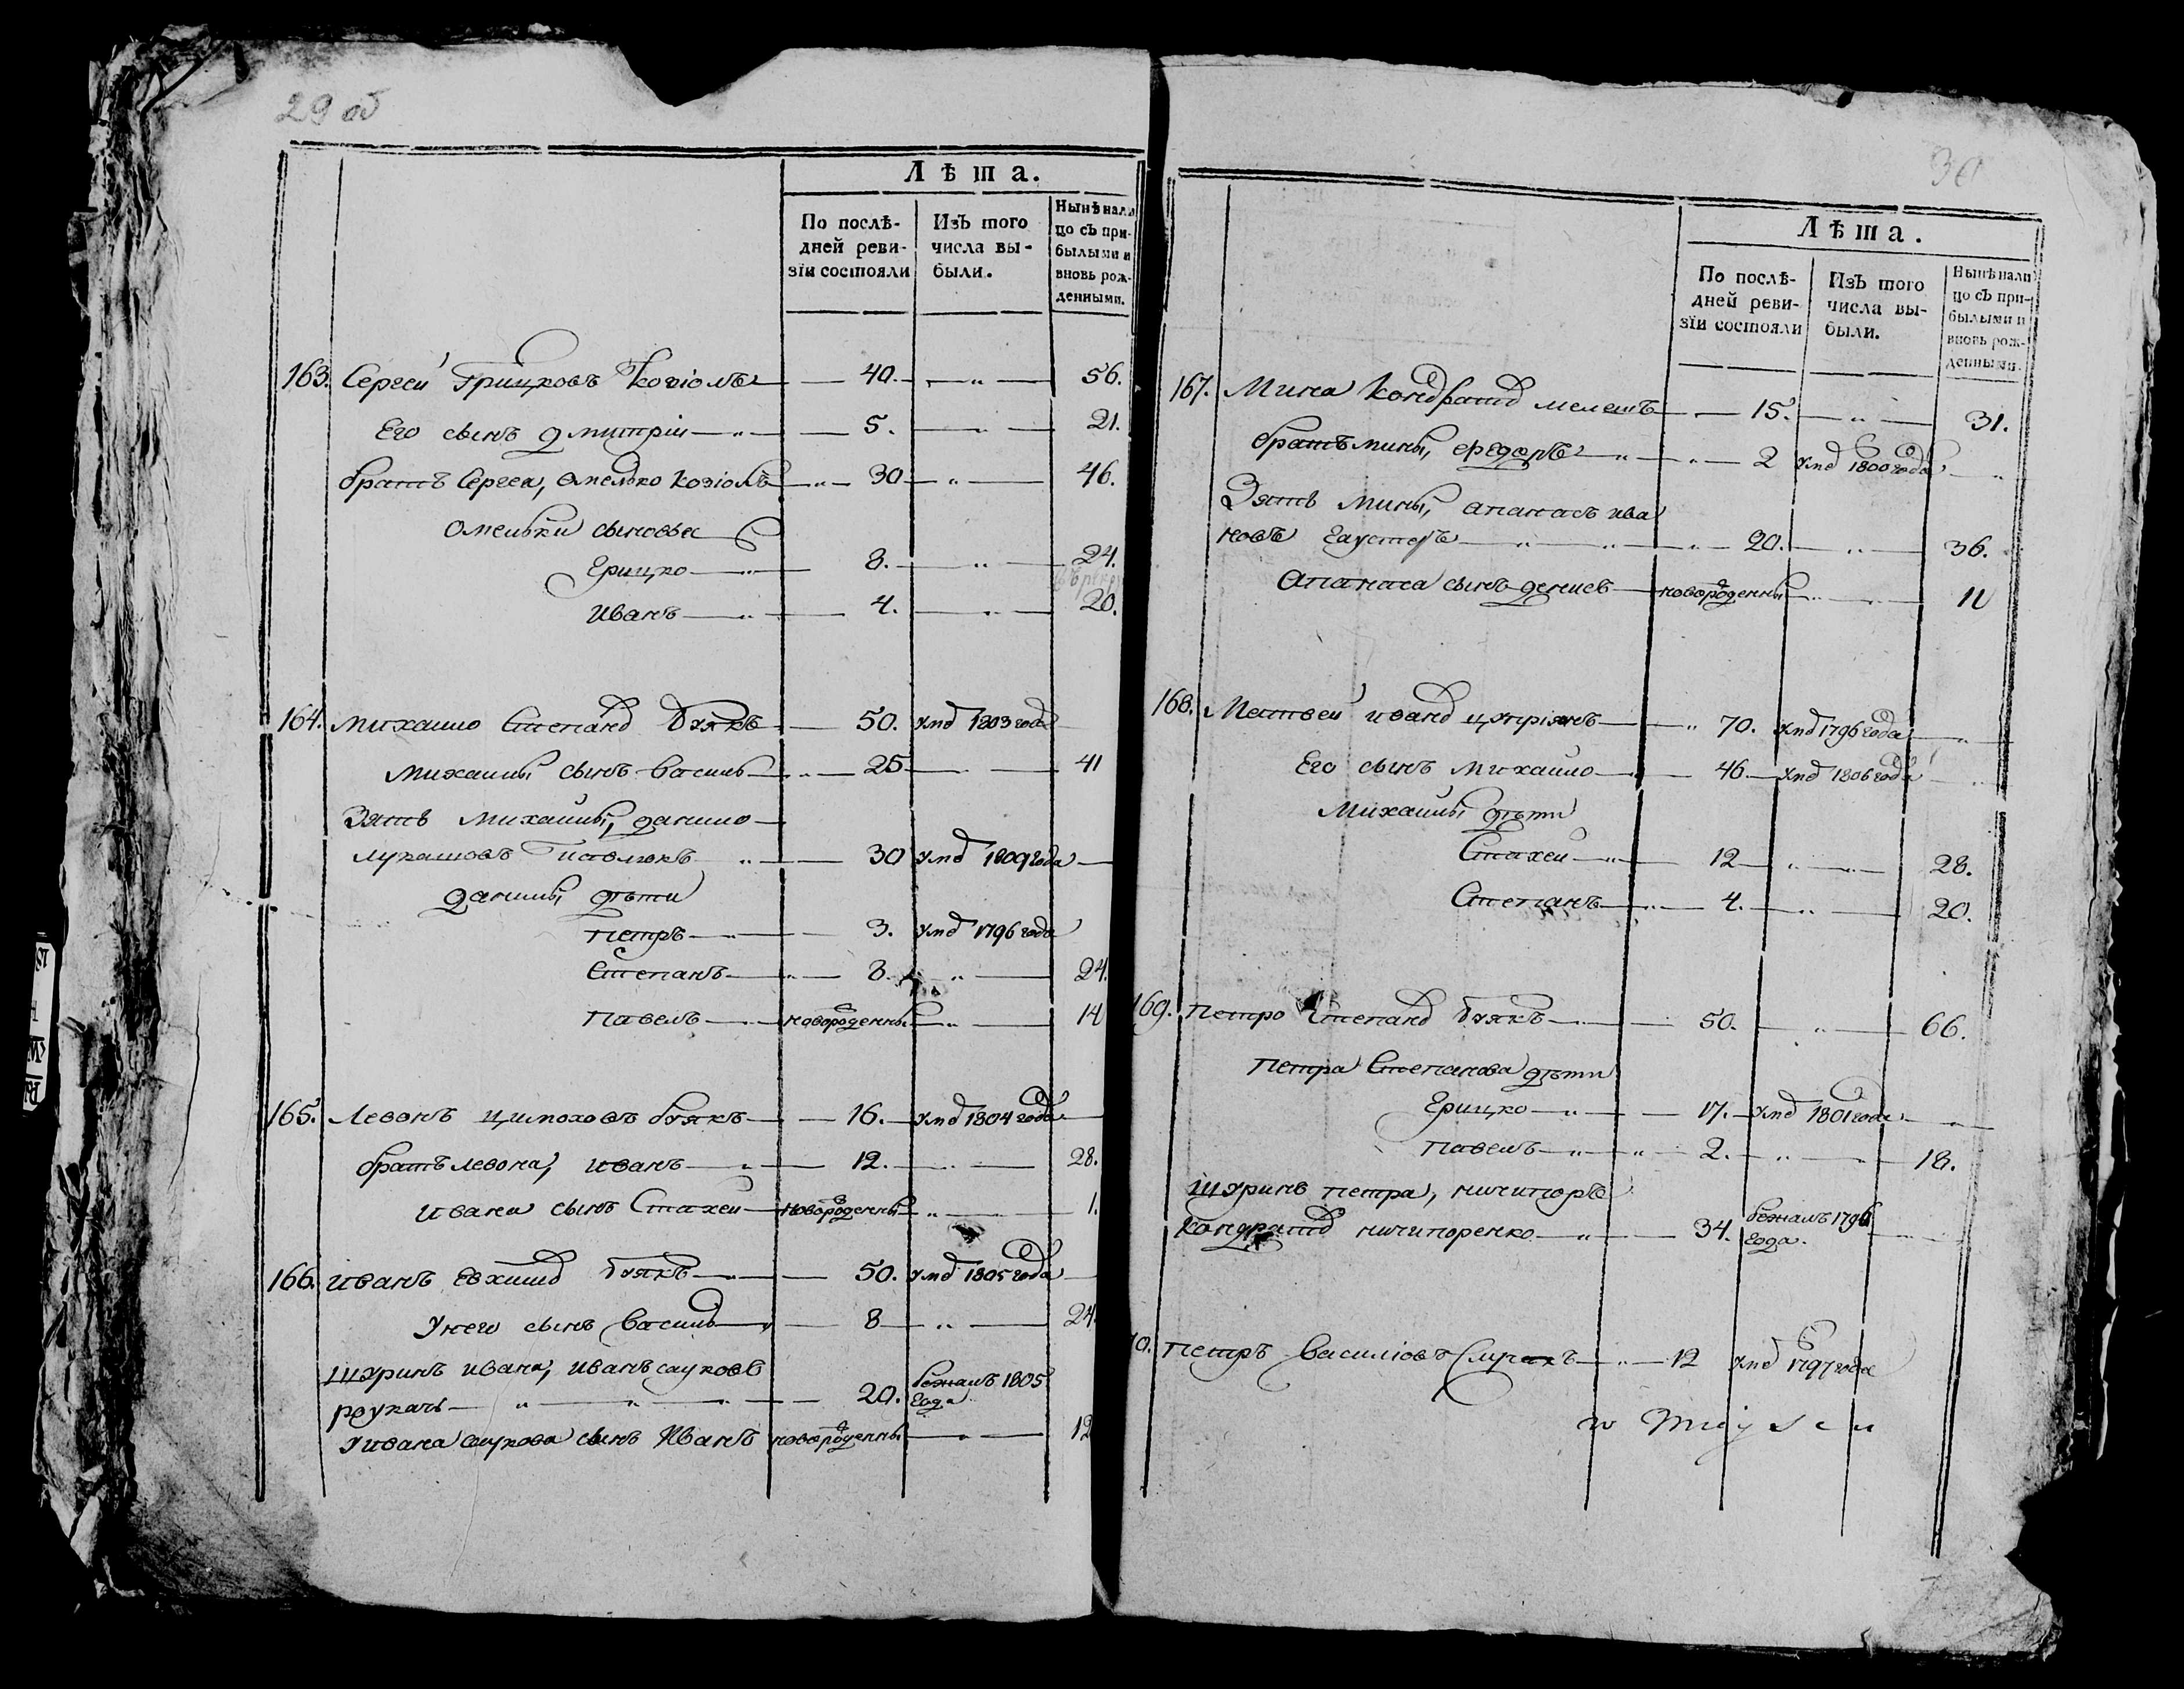 29 об
Лѣта.
По послѣ-
дней реви-
зіи состояли
Изъ того
числа вы-
были.
Нынѣ нали
цо съ при-
былыми и
вновь рож-
денными.
163. Сергей Грицковъ Козіолъ — 40. — „ — 56.
Его сынъ Дмитрій — „ — 5. — „ — 21.
братъ Сергея, Омелько Козіолъ — „ — 30 — „ — 46.
Омельки сыновья
Грицко — „ — 8. — „ — 24.
Иванъ — „ — 4. — „ — 20.
164. Михайло Степанд Буякъ — 50. умд 1803 года
Михайлы сынъ Василь — „ — 25 — „ — 41
Зять Михайлы, Данило —
Лукашовъ — „ — 30 умд 1809 года —
Данилы дѣти
Петръ — „ — 3. умд 1796 года
Степанъ — „ — 8. — „ — 24.
Павелъ — „ — новорожденный — „ — 14
165. Левонъ Цимоховъ Буякъ — 16. — умд 1804 года —
братъ Левона, Иванъ — „ — 12. — „ — 28.
Ивана сынъ Стахей — новорожденный — „ — 1.
166. Иванъ Евхимд Буякъ — „ — 50. умд 1805 года —
У него сынъ Василь — „ — 8 — „ — 24.
Шуринъ Ивана, Иванъ Сауковъ
— „ — „ — „ — 20. бежалъ 1805
года.
У Ивана Саукова сынъ Иванъ новорожденный — „ — 12
30
Лѣта.
По послѣ-
дней реви-
зіи состояли
Изъ того
числа вы-
были.
Нынѣ нали
цо съ при-
былыми и
вновь рож-
денными.
167. Мина Кондратд Мелешъ — „ — 15. — „ — 31.
братъ Мины, Федоръ — „ — „ — 2 умд 1800 года — „
Зять Мины, Апанасъ Ива
новъ — „ — „ — „ — 20. — „ — 36.
Апанаса сынъ Денисъ — новорожденный — „ — 11
168. Матвей Иванд Цупріянъ — „ 70. умд 1796 года — „
Его сынъ Михайло — 46. — умд 1806 года — „
Михайлы дѣти
Стахей — „ — 12 — „ — 28.
Степанъ — „ — 4. — „ — 20.
169. Петро Степанд Буякъ — „ — 50. — „ — 66.
Петра Степанова дѣти
Грицко — „ — 17. — умд 1801 года — „
Павелъ — „ — „ — 2. — „ — „ — 18.
Шуринъ Петра, Ничипоръ
Кондратд Ничипоренко — „ — 34. бежалъ 1796
года. — „
0. Петръ Василіовъ — „ — 12 умд 1797 года